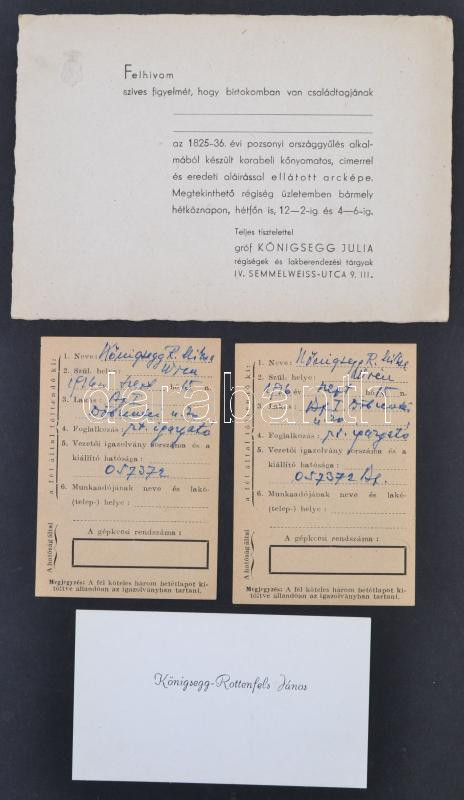 Felhivom
szives figyelmét, hogy birtokomban van családtagjának
az 1825-36. évi pozsonyi országgyűlés alkal-
mából készült korabeli kőnyomatos, cimerrel
és eredeti aláirással ellátott arcképe.
Megtekinthető régiség üzletemben bármely
hétköznapon, hétfőn is, 12—2-ig és 4—6-ig.
Teljes tisztelettel
gróf KÖNIGSEGG JULIA
régiségek és lakberendezési tárgyak
IV. SEMMELWEISS-UTCA 9. III.
a fél által töltendő ki:
1. Neve: Königsegg R.
2. Szül. helye: Wien
1916 év szept hó 15 n.
3. Lakik: Bp I
4. Foglalkozás:
5. Vezetői igazolvány orszáma és a
kiállító hatósága:
057372
6. Munkaadójának neve és lakó-
(telep-) helye:
A hatóság által
A gépkocsi rendszáma:
Megjegyzés: A fél köteles három betétlapot ki-
töltve állandóan az igazolványban tartani.
a fél által töltendő ki:
1. Neve: Königsegg R.
2. Szül. helye: Wien
év szept hó 15 n.
3. Lakás: Bp I
4. Foglalkozás:
5. Vezetői igazolvány orszáma és a
kiállító hatósága:
057372 Bp.
6. Munkaadójának neve és lakó-
(telep-) helye:
A hatóság által
A gépkocsi rendszáma:
Megjegyzés: A fél köteles három betétlapot ki-
töltve állandóan az igazolványban tartani.
Königsegg-Rottenfels János
darabanth